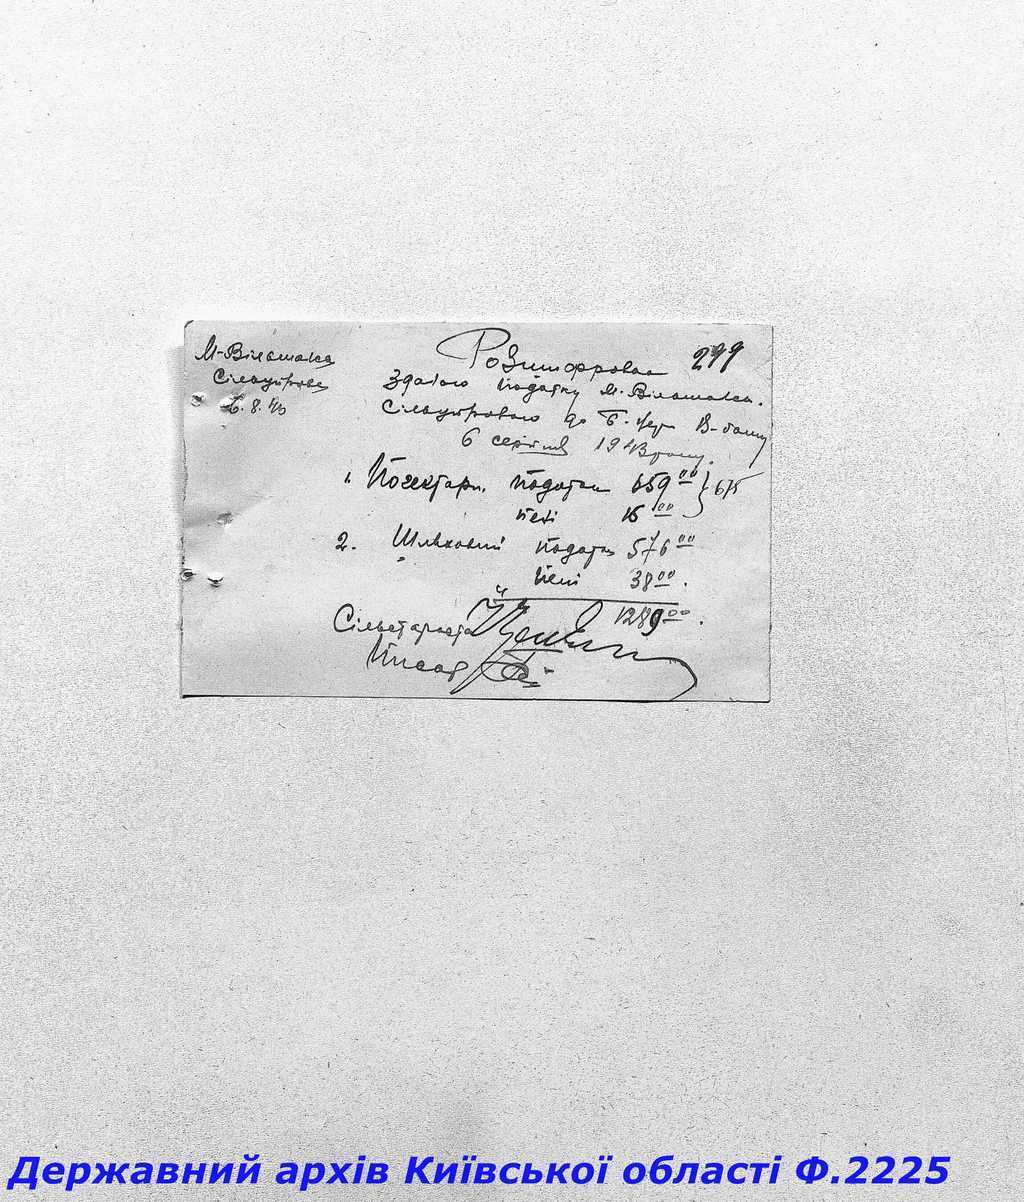 М-Вільшанка
Сільуправа
6.8.43
Розшифровка 299
Зданого податку М. Вільшанськ.
Сільуправою до Б-Цер
6 серпня 1943 року.
1. Погектарн. податок 659 00 } 675
пені 16 00
2. Шляховий податок 576 00
пені 38 00.
1289 00.
Сільстароста
Писар
Державний архів Київської області Ф.2225